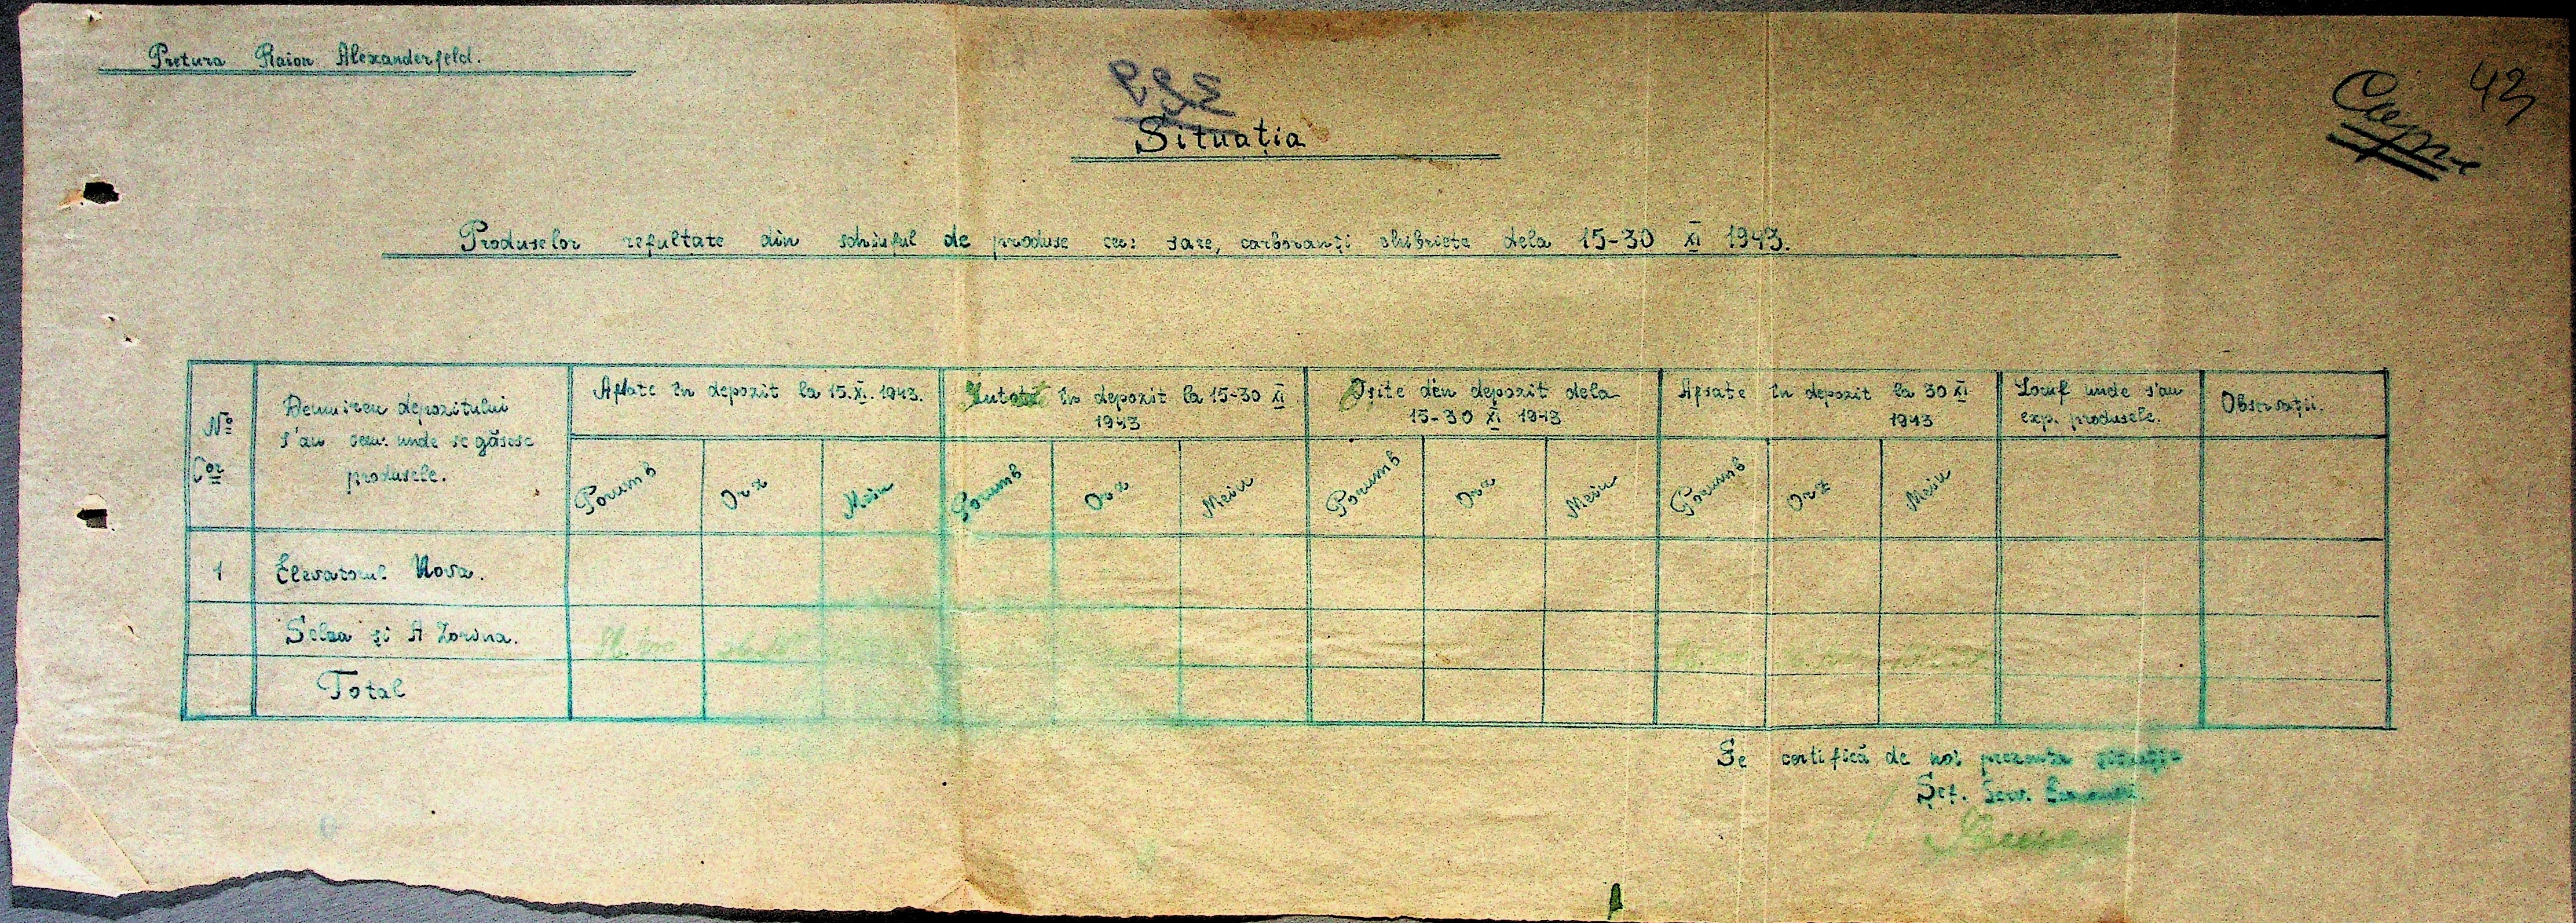 Pretura Raion Alexanderfeld.
42
Situația
Produselor rezultate din schimbul de produse cu: sare, carboranți chibriete dela 15-30 XI 1943.
No Cor
Denumirea depozitului
s'au com: unde se găsesc
produsele.
Aflate în depozit la 15.XI.1943.
în depozit la 15-30 XI
1943
Eșite din depozit dela
15-30 XI 1943
Aflate în depozit la 30 XI
1943
Locul unde s'au
exp. produsele.
Observații.
Porumb Orz Meiu Porumb Orz Meiu Porumb Orz Meiu Porumb Orz Meiu
1 Elevatorul Nova.
Selca și A Zorina.
Total
Se certifică de noi prezenta situație
Șef. Serv.